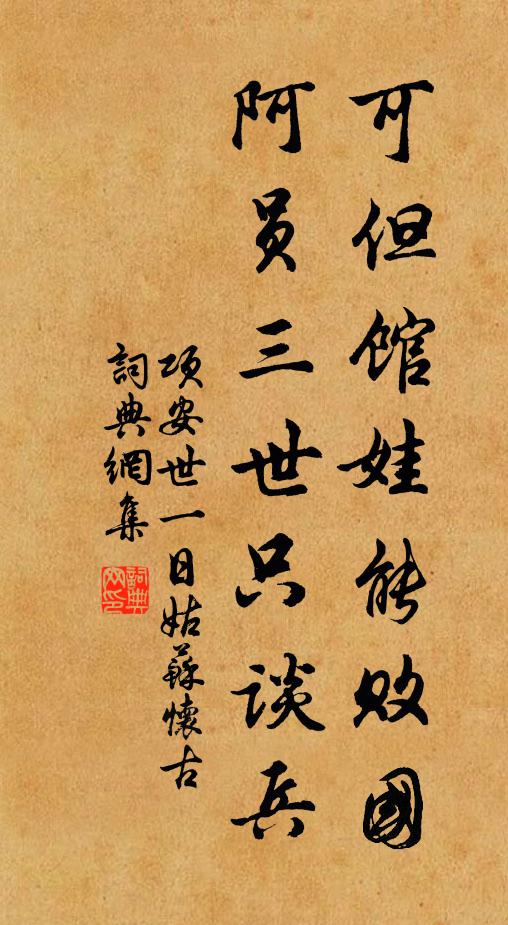 可但館娃能敗國
阿員三世只談兵
項安世一日姑蘇懷古
詞典網集
詞典网印